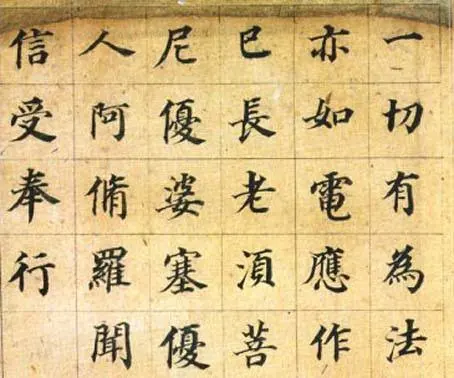 一切有為法
亦如電應作
已長老須菩
尼優婆塞優
人阿脩羅聞
信受奉行